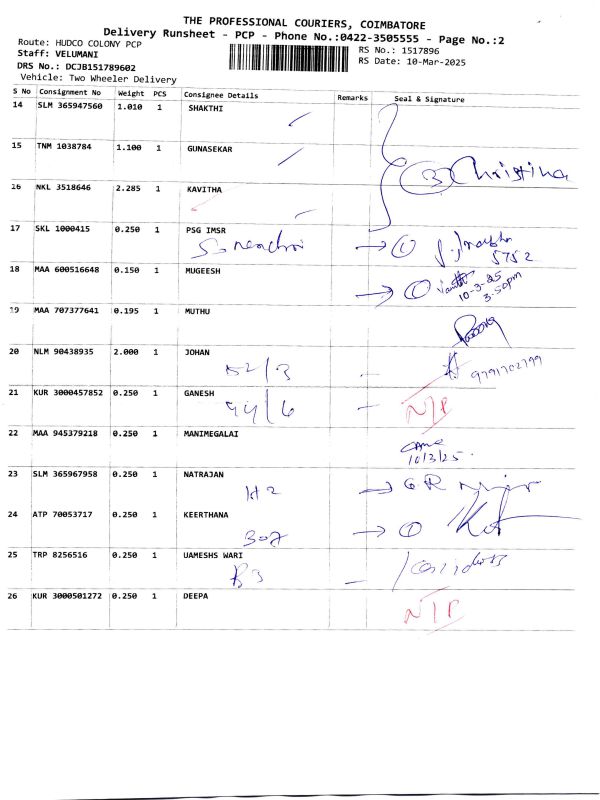 THE PROFESSIONAL COURIERS, COIMBATORE
Delivery Runsheet - PCP - Phone No.:0422-3505555 - Page No.:2
Route: HUDCO COLONY PCP
RS No.: 1517896
Staff: VELUMANI
RS Date: 10-Mar-2025
DRS No.: DCJB151789602
Vehicle: Two Wheeler Delivery
S No Consignment No Weight PCS Consignee Details Remarks Seal & Signature
14 SLM 365947560 1.010 1 SHAKTHI
15 TNM 1038784 1.100 1 GUNASEKAR
3 Christina
16 NKL 3518646 2.285 1 KAVITHA
17 SKL 1000415 0.250 1 PSG IMSR
1
5752
18 MAA 600516648 0.150 1 MUGEESH
1
10-3-25
3.50pm
19 MAA 707377641 0.195 1 MUTHU
20 NLM 90438935 2.000 1 JOHAN
52/3
9791702799
21 KUR 3000457852 0.250 1 GANESH
94/6 N/P
22 MAA 945379218 0.250 1 MANIMEGALAI
10/3/25.
23 SLM 365967958 0.250 1 NATRAJAN
H2 G.R
24 ATP 70053717 0.250 1 KEERTHANA
307 1
25 TRP 8256516 0.250 1 UAMESHS WARI
B3
26 KUR 3000501272 0.250 1 DEEPA
N/P